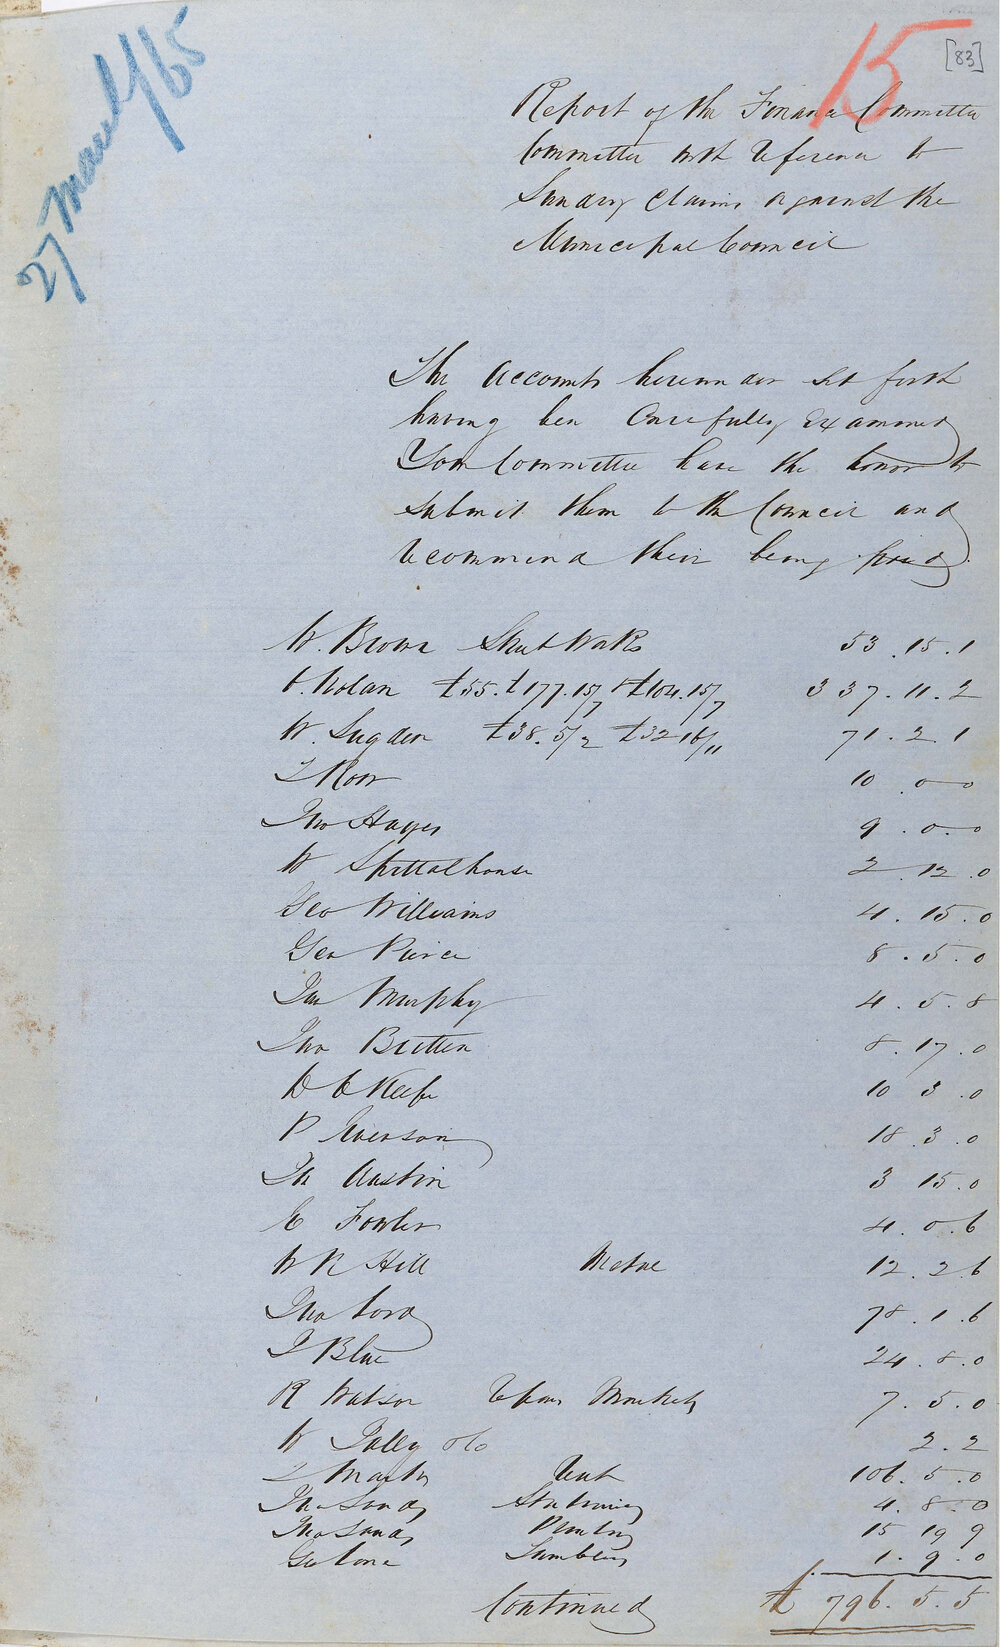 27 March/65
15
[83]
Report of the Finance Committee
Committee with reference to
Sundry Claims against the
Municipal Council
The Accounts hereunder set forth
having been Carefully Examined
Your Committee have the honor to
submit them to the Council and
recommend their being paid.
W. Brown Street Works 53.15.1
Nolan £55. £177.15/7 £104.15/7 337.11.2
W. Sugden £38.5/2 £32 16/11 71.2.1
10.0.0
Jno Hayes 9.0.0
W Spittalhouse 2.12.0
Geo Williams 4.15.0
Geo Pierce 8.5.0
Murphy 4.5.8
Jno Britten 8.17.0
D O'Keefe 10 3.0
P Iverson 18.3.0
Austin 3 15.0
E Fowler 4.0.6
W R Hill Metal 12.2.6
Tho Lord 78.1.6
J Blue 24.8.0
R Watson Repairs Markets 7.5.0
W Talley do 2.2
Martin Rent 106.5.0
Sands Stationery 4.8.0
Sands Printing 15 19 9
Geo Cone Sundries 1.9.0
Continued £796.5.5